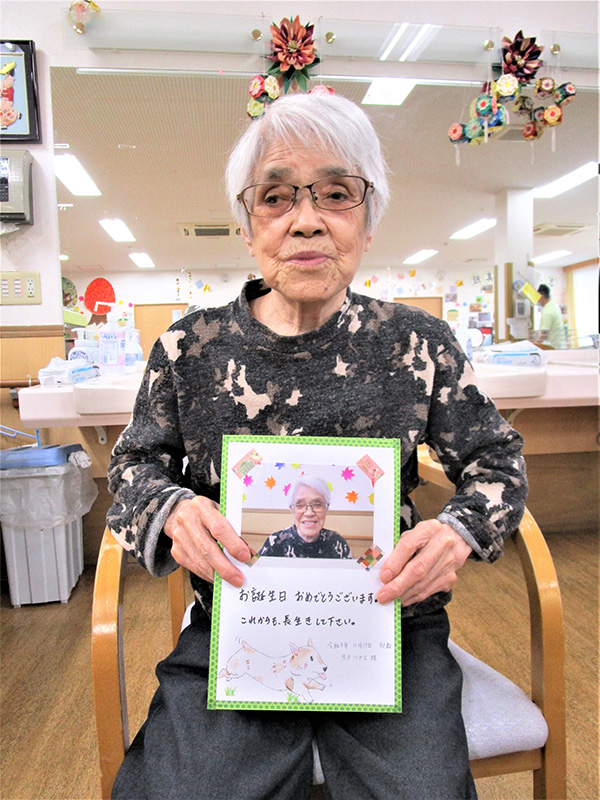 お誕生日 おめでとうございます。
これからも、長生きして下さい。
11月17日
様